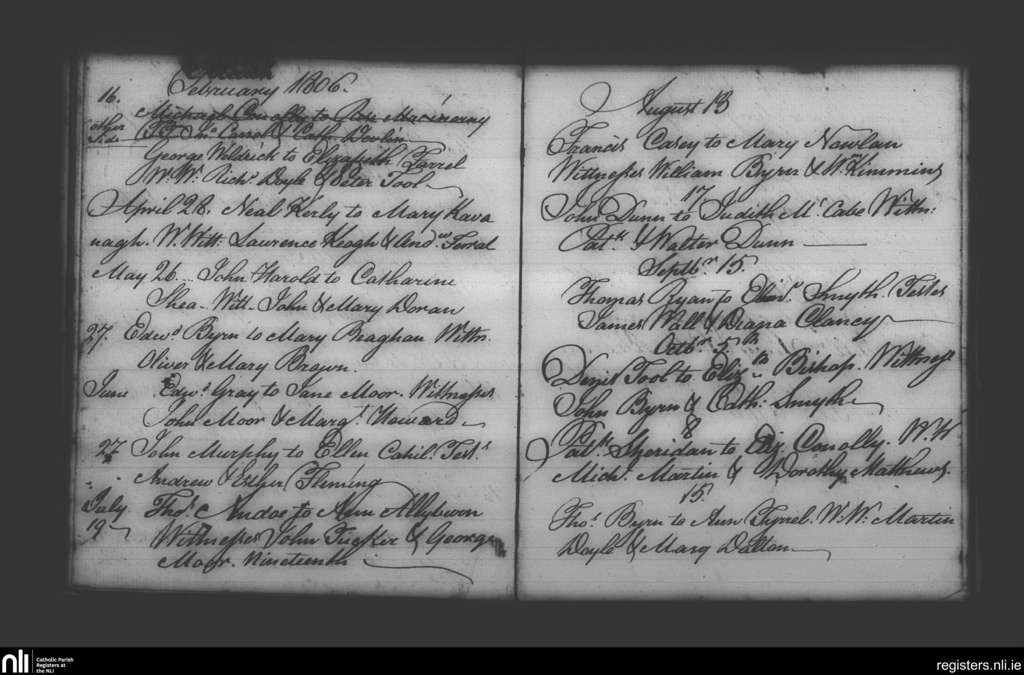 February 1806.
16.
Michael Conolly to Rose
other side
Jno Carroll & Cath. Devlin
George Wildrick to Elizabeth Farrel
W.W. Richd Doyle & Peter Tool
April 28. Neal Kerly to Mary Kava
nagh. W. Witt. Lawrence Keogh & Andw Farral
May 26. John Harold to Catharine
Shea. Witt. John & Mary Doran
27. Edwd Byrn to Mary Meaghan Wittn.
Oliver & Mary Brown.
June Edwd Gray to Jane Moor. Wittnesses
John Moor & Margt Howard
27 John Murphy to Ellen Cahil. Tests
Andrew & Esther Fleming
July Thos to Ann
19 Wittnesses John Tucker & George
Moor. Nineteenth
August 13
Francis Casey to Mary Nowlan
Wittnesses William Byrn & W. Kimmins
17
John Dunn to Judith Mc Cabe Wittn:
Patk & Walter Dunn
Septbr 15.
Thomas Ryan to Elianr Smyth. Testes
James Wall & Diana Clancy
Octbr 5th
Denis Tool to Elizth Bishop. Wittness
John Byrn & Cath: Smyth
8
Patk Sheridan to Eliz Conolly. W.W
Michl Martin & Dorothy Mathews.
15.
Thos Byrn to Ann Tyrrel. W.W. Martin
Doyle & Mary Dalton
nli
Catholic Parish
Registers at
the NLI
registers.nli.ie